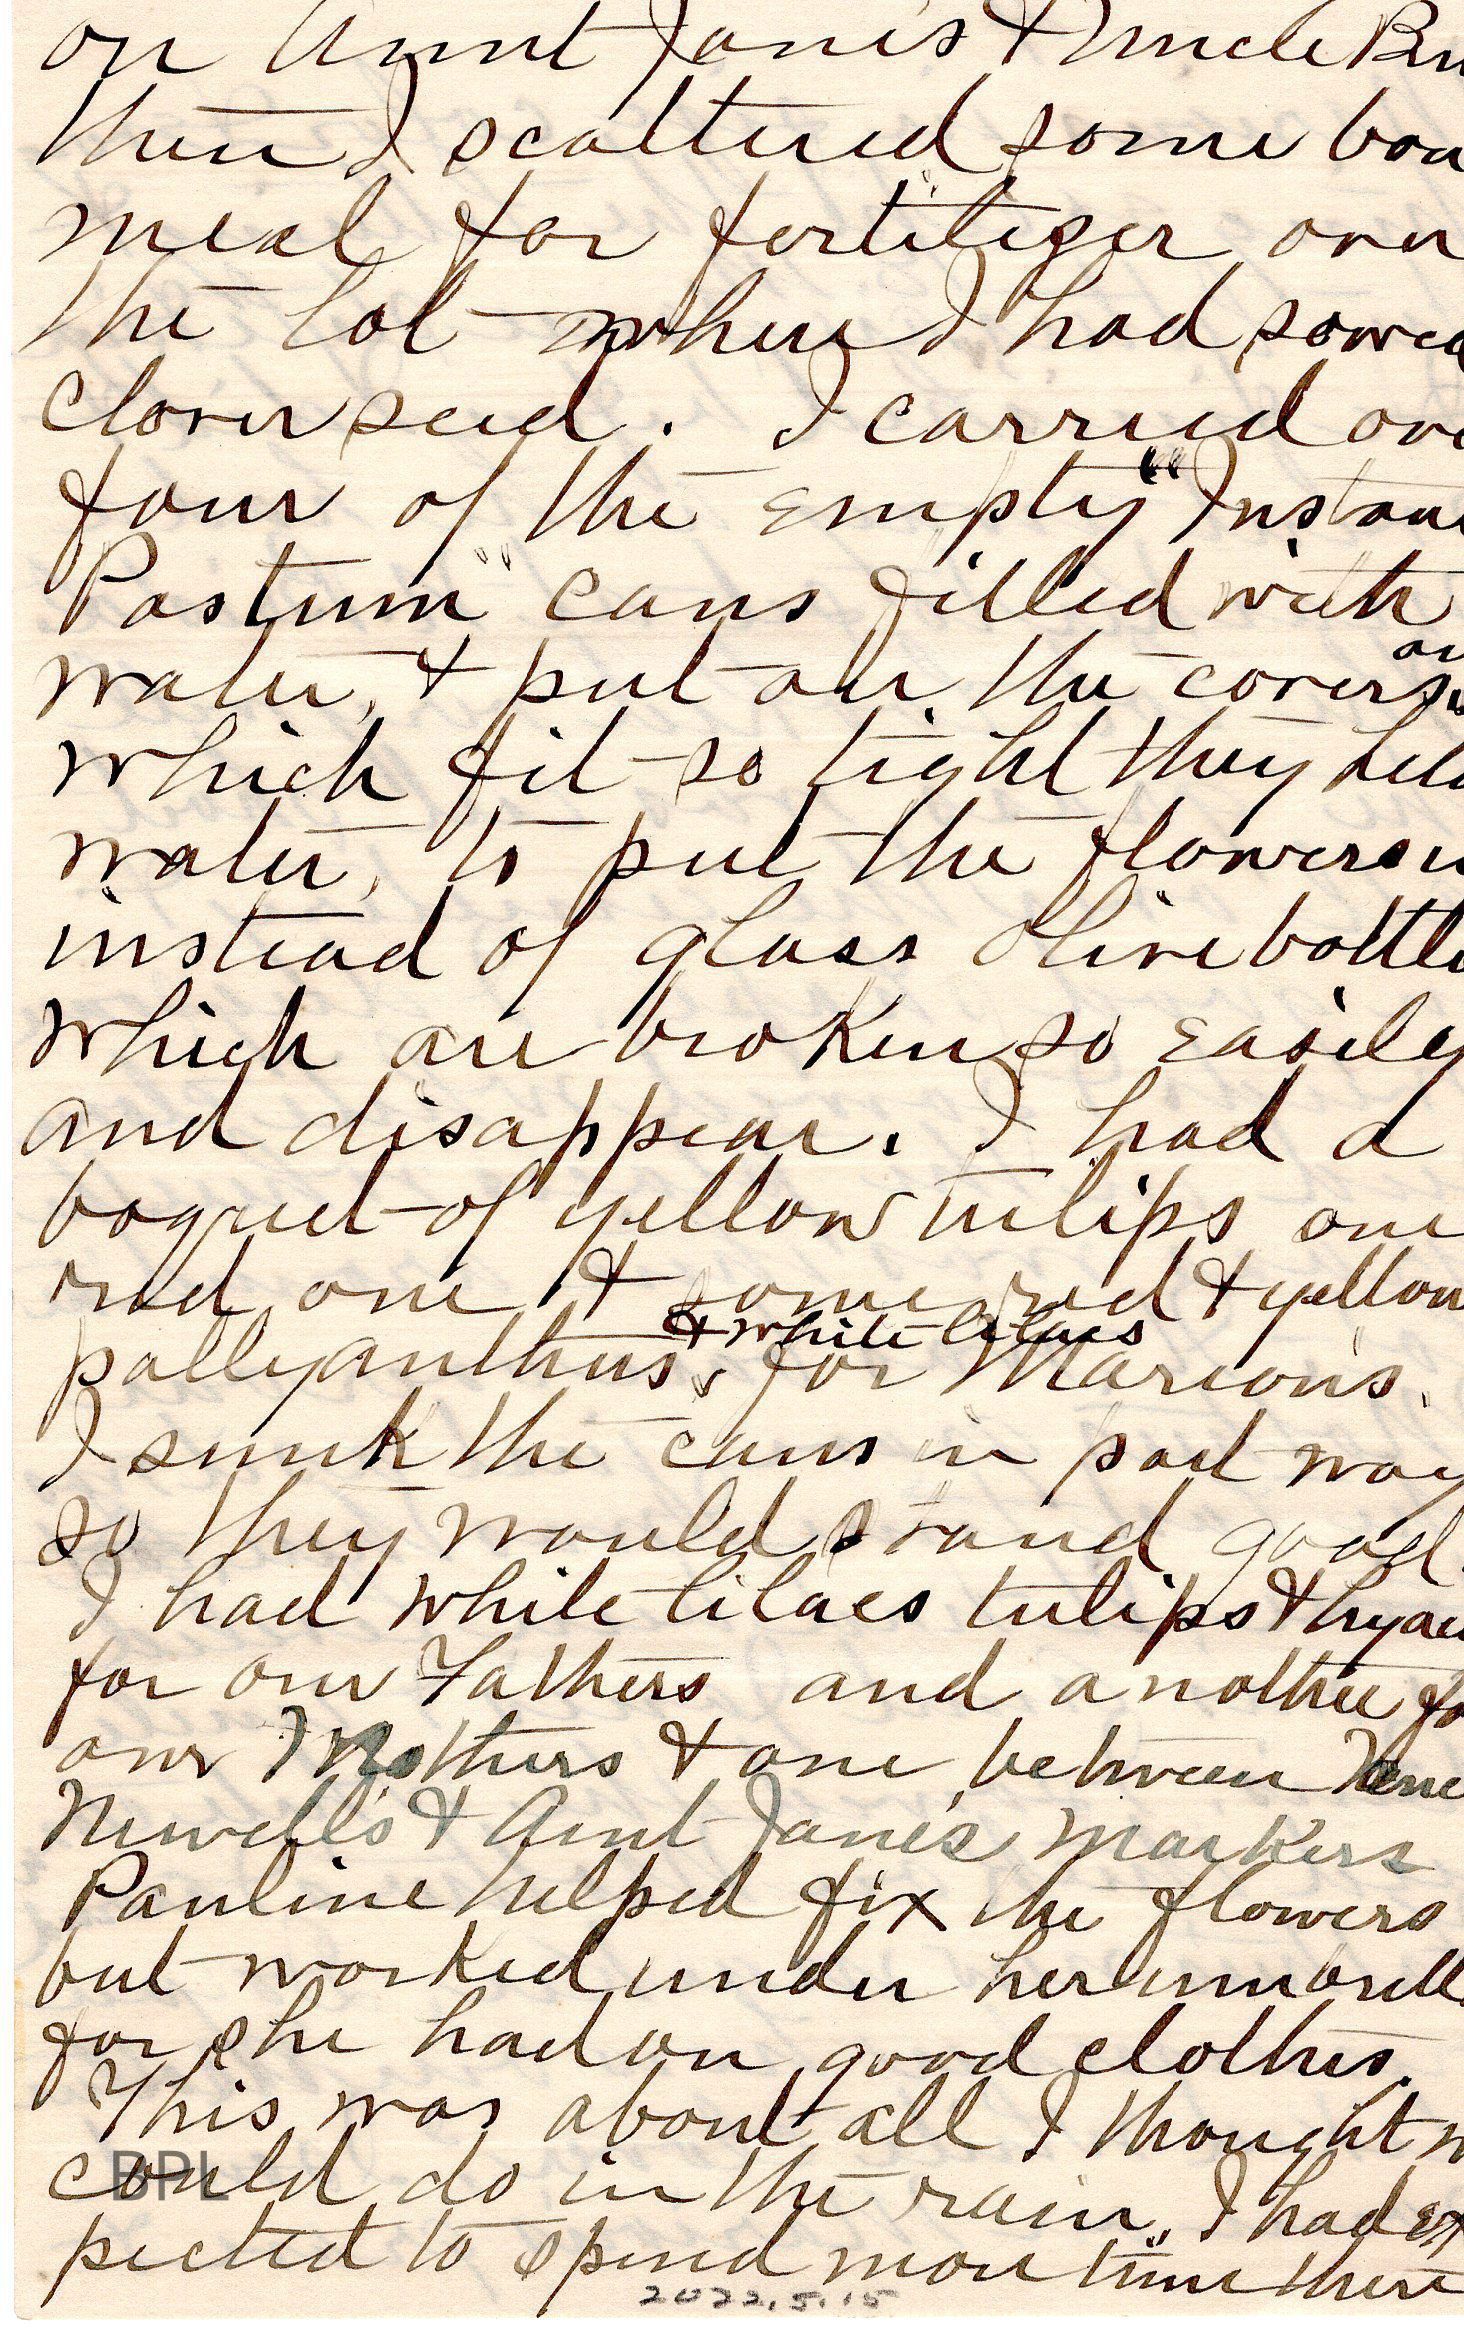 on Aunt Jane's & Uncle
then I scattered some
meal for fertilizer over
the lot where I had sowed
clover seed. I carried ove
four of the empty "Instan
Postum" cans filled with
water, & put on the covers
which fit so tight they held
water, to put the flowers
instead of glass Olive bottle
which are broken so easily
and disappear. I had a
boquet of yellow tulips one
red one & some red & yellow
& white lilacs
pollyanthus, for Marion's.
I sunk the cans in part way
so they would stand good.
I had white lilacs tulips & hyac
for our Fathers and another fo
our Mothers & one between
Newell's & Aunt Jane's markers
Pauline helped fix the flowers
but worked under her umbrell
for she had on good clothes.
This was about all I thought w
could do in the rain, I had ex
pected to spend more time there
BPL
2022.5.15